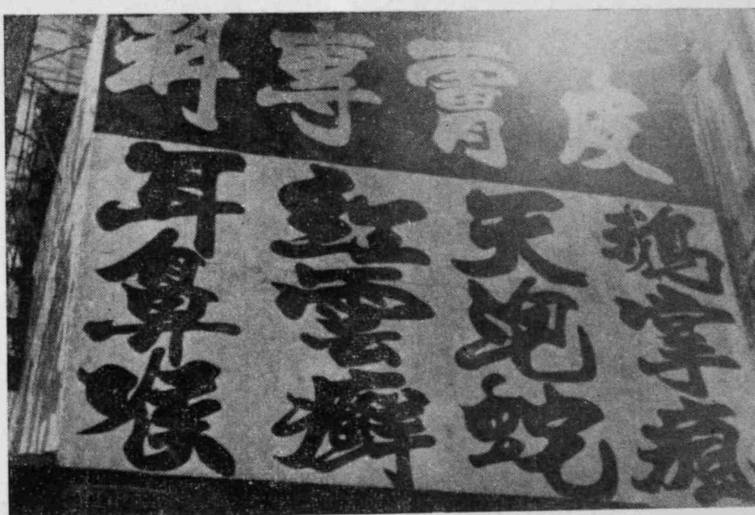 皮膚專科
鵝掌瘋
天泡蛇
紅雲癬
耳鼻喉